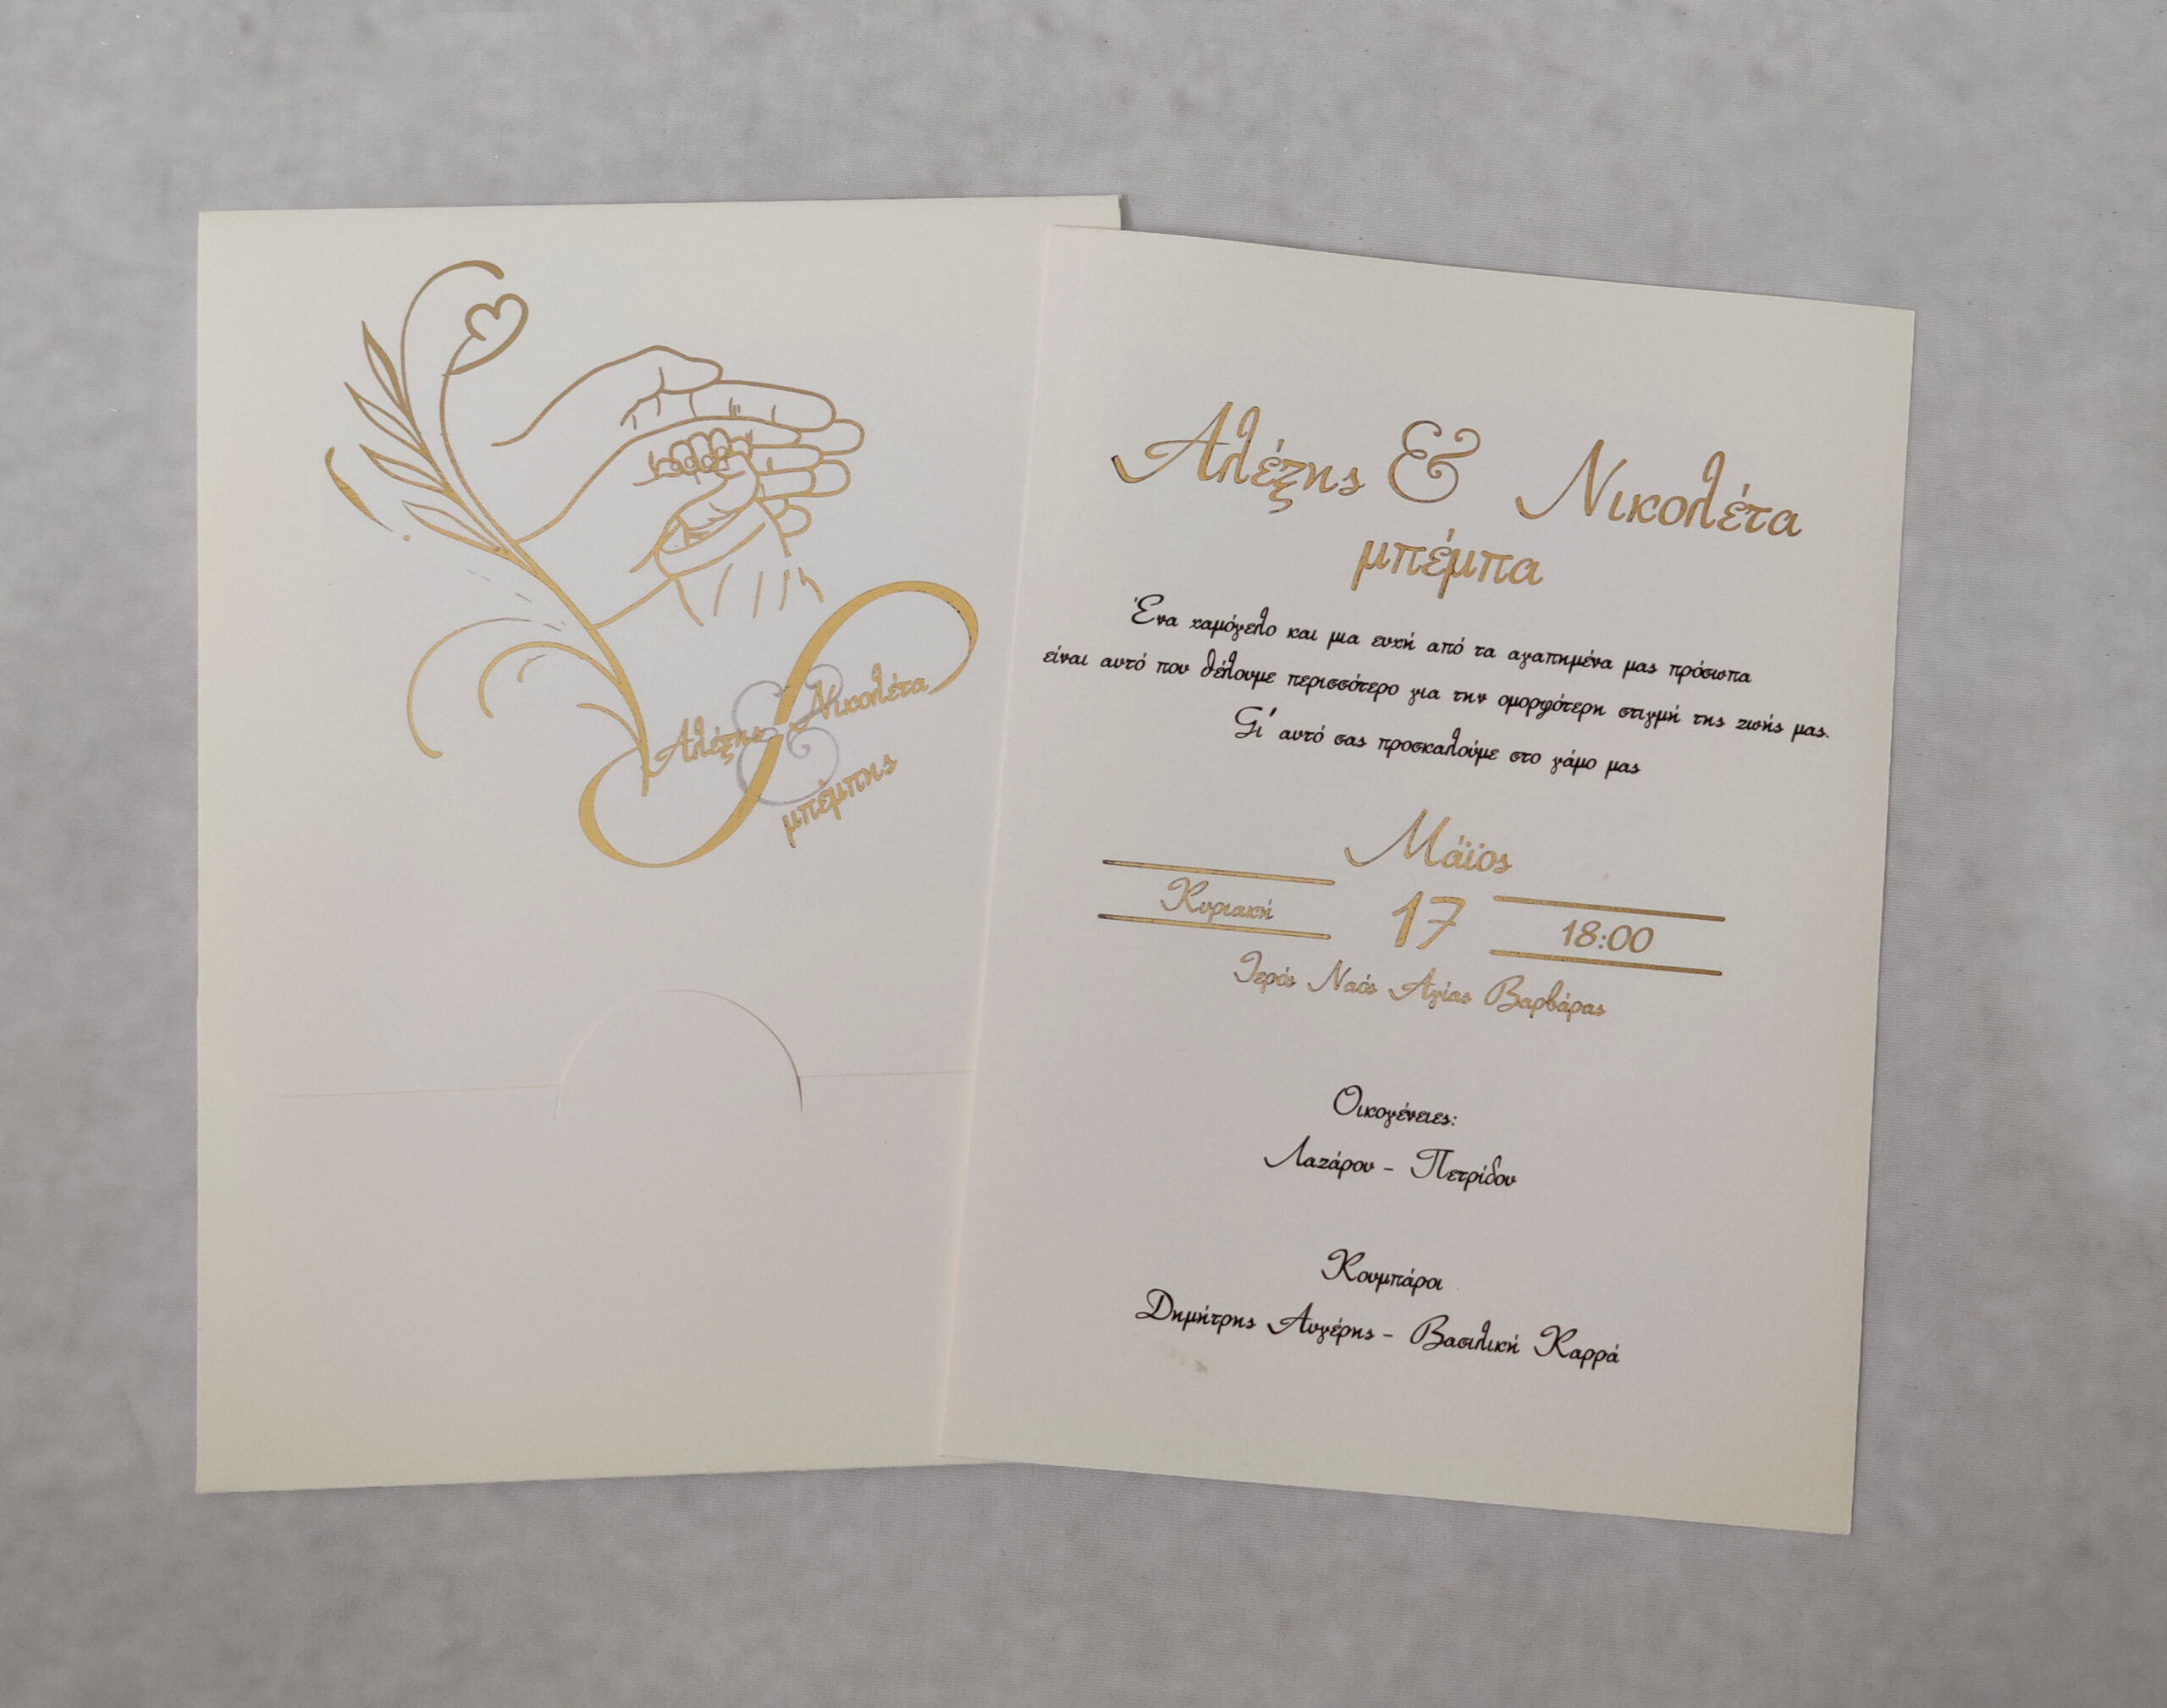 Αλέξης & Νικολέτα
μπέμπης
Αλέξης & Νικολέτα
μπέμπα
Ένα χαμόγελο και μια ευχή από τα αγαπημένα μας πρόσωπα
είναι αυτό που θέλουμε περισσότερο για την ομορφότερη στιγμή της ζωής μας.
Γι' αυτό σας προσκαλούμε στο γάμο μας
Μάϊος
Κυριακή 17 18:00
Ιερός Ναός Αγίας Βαρβάρας
Οικογένειες:
Λαζάρου - Πετρίδου
Κουμπάροι
Δημήτρης Αυγέρης - Βασιλική Καρρά